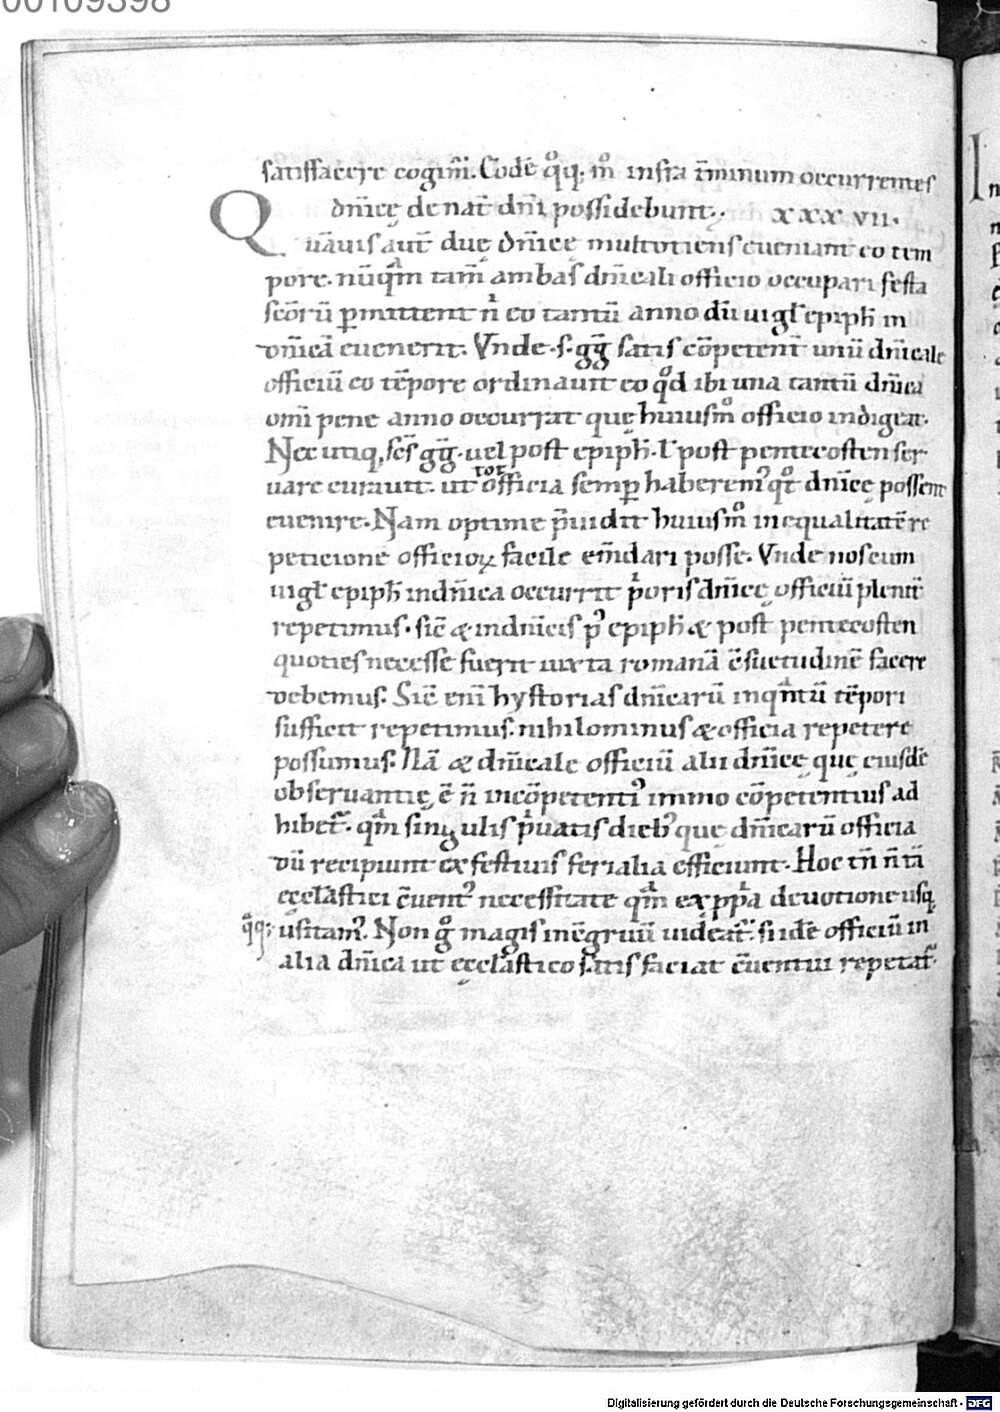 00109398
satisfacere cogim̄. Eodē qͦq; mͦ infra t̄minum occurrentes
dn̄icę de nat̄ dn̄i possidebunt. xxxvii.
Quāuis aut̄ duę dn̄icę multotiens eueniant eo tem
pore. nūqᷓm tam̄ ambas dn̄icali officio occupari festa
sc̄orū ꝑmittent n̄ eo tantū anno dū uigł epiph̄ in
dn̄icā euenerit. Vnde .s. gḡ satis cōpetent̄ unū dn̄icale
officiū eo tēpore ordinauit eo qͦd ibi una tantū dn̄ica
om̄i pene anno occurrat quę huiusmͦ officio indigeat.
Nec utiq, sc̄s gḡ. uel post epiph̄. ł post pentecosten ser
uare curauit. ut tot officia semꝑ haberem᾽ qͦt dn̄icę possent
euenire. Nam optime p̄uidit huiusmͦ inequalitatē re
peticione officioꝝ facile em̄dari posse. Vnde nos cum
uigł epiph̄ in dn̄ica occurrit pͥoris dn̄icę officiū plenit̄
repetimus. sic̄ & in dn̄icis p᾽ epiph̄ & post pentecosten
quoties necesse fuerit iuxta romanā c̄suetudinē facere
debemus. Sic̄ eni̅ hystorias dn̄icarū inqᷓntū tēpori
sufficit repetimus. nihilominus & officia repetere
possumus. Nā & dn̄icale officiū alii dn̄icę quę eiusdē
obseruantię ē n̄ incōpetenti᾽ immo cōpetentius ad
hibet̄. qᷓm singulis pͥuatis dieb᾽ que dn̄icarū officia
dū recipiunt ex festiuis ferialia efficiunt. Hoc tn̄ n̄ tā
ęcclāstici c̄uent᾽ necessitate qᷓm ex ppͥa deuotione usq
qᷓq; usitam᾽. Non gͦ magis incc̄gruū uideat̄. si idē officiū in
alia dn̄ica ut ęcclāstico satisfaciat c̄uentui repetat̄.
Digitalisierung gefördert durch die Deutsche Forschungsgemeinschaft - DFG